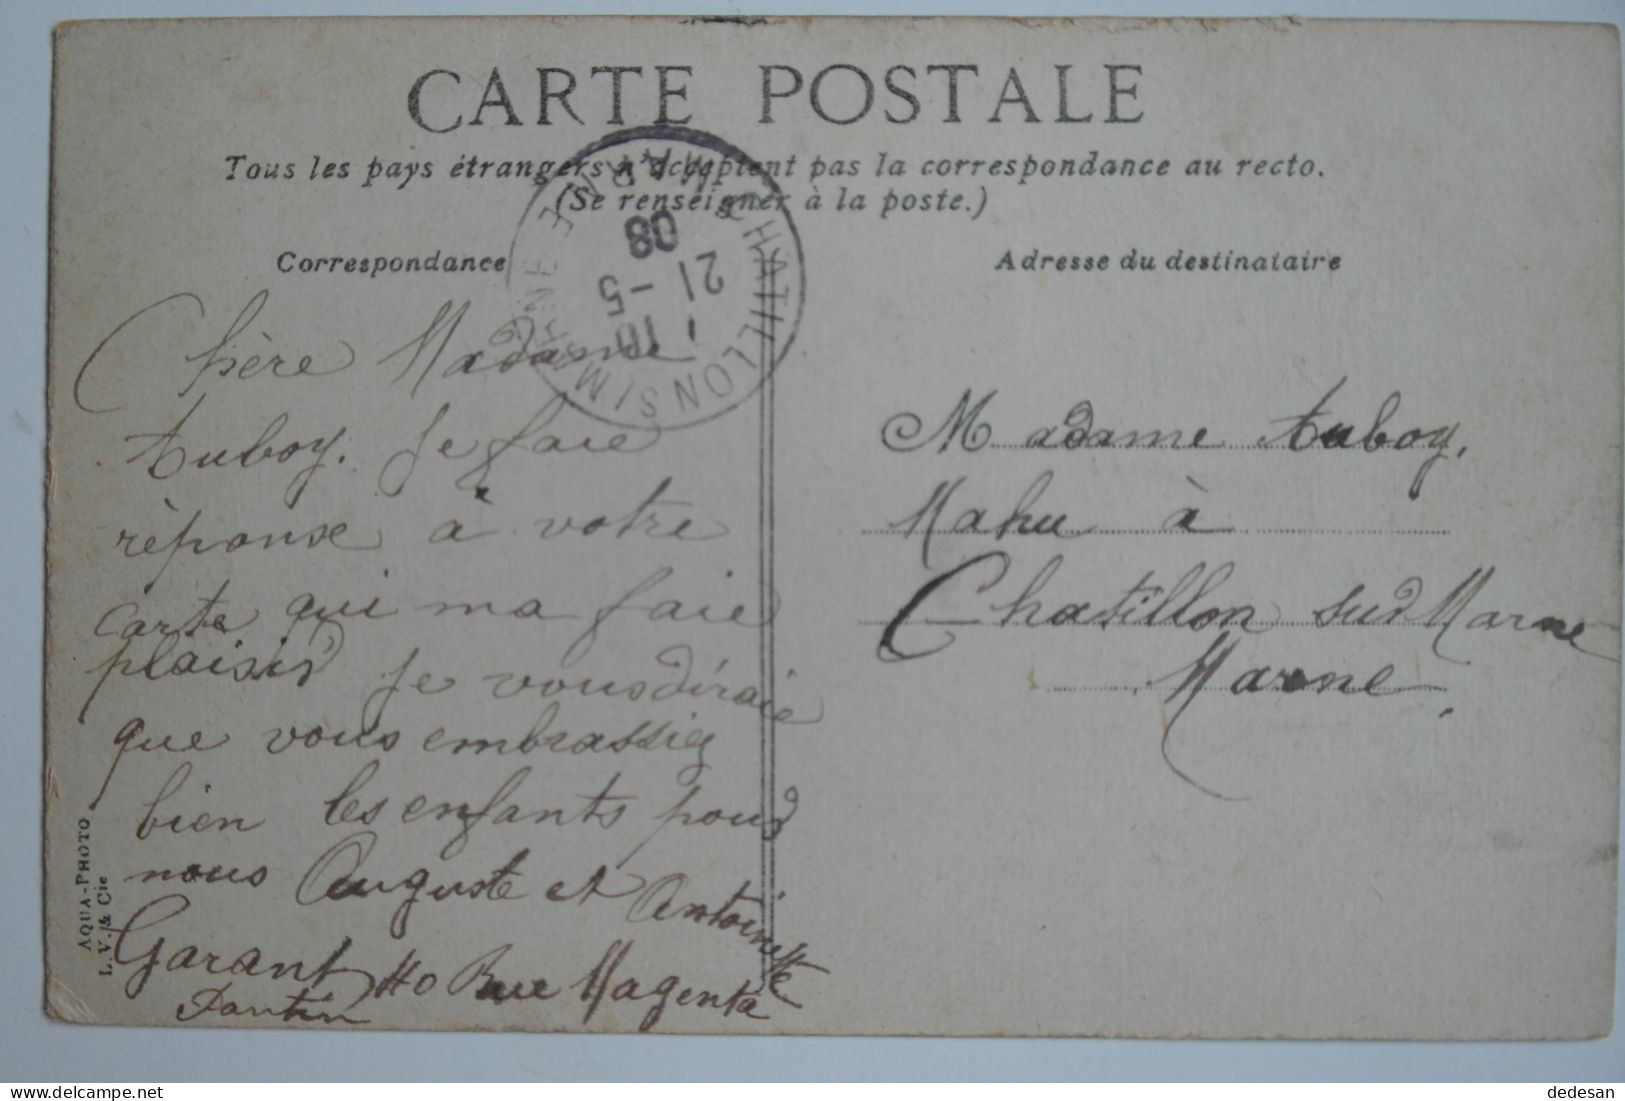 CARTE POSTALE
Tous les pays étrangers n'acceptent pas la correspondance au recto.
(Se renseigner à la poste.)
Correspondance
Adresse du destinataire
CHATILLON S/MARNE
MARNE
10
21 - 5
08
Chère Madame
Auboy. Je faie
rèponse à votre
carte qui ma faie
plaisir Je vous diraie
que vous embrassiez
bien les enfants pour
nous Auguste et Antoinette
Garant 40 Rue Magenta
Pantin
Madame Auboy,
Mahu à
Chatillon sur Marne
Marne
AQUA-PHOTO
L. V. & Cie
dedesan